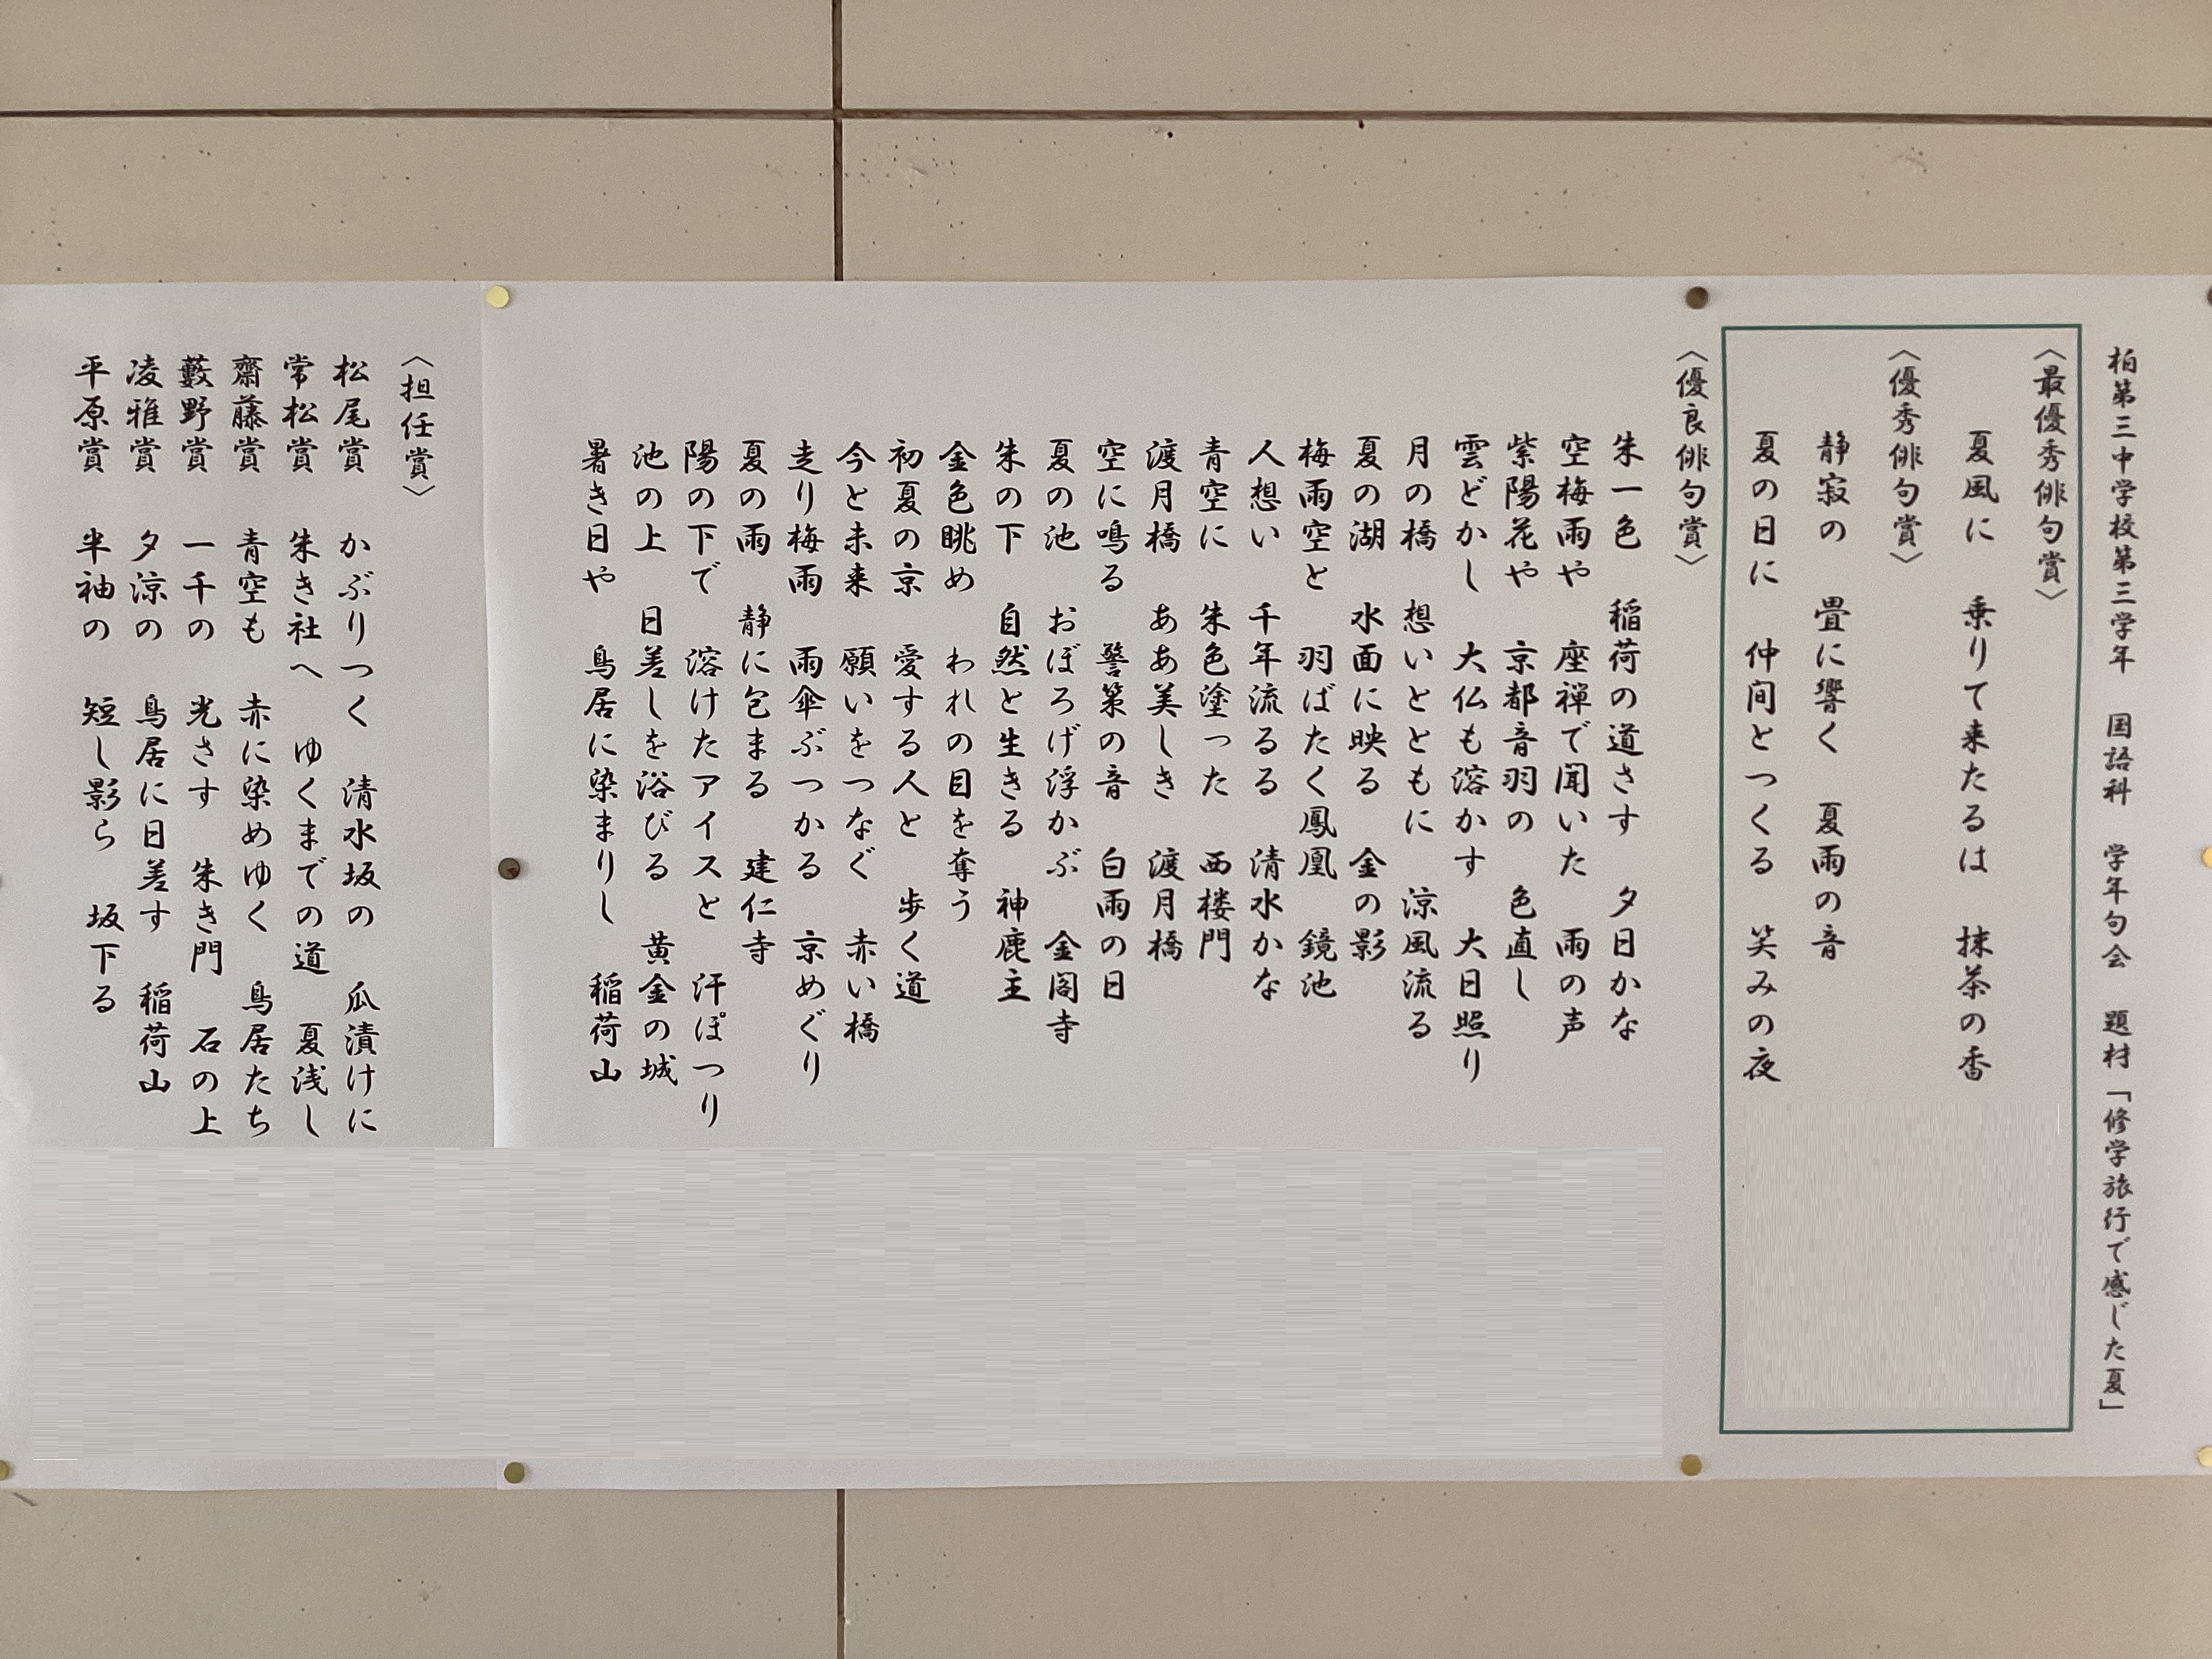 柏第三中学校第三学年　国語科　学年句会　題材「修学旅行で感じた夏」
〈最優秀俳句賞〉
夏風に　乗りて来たるは　抹茶の香
〈優秀俳句賞〉
静寂の　畳に響く　夏雨の音
夏の日に　仲間とつくる　笑みの夜
〈優良俳句賞〉
朱一色　稲荷の道さす　夕日かな
空梅雨や　座禅で聞いた　雨の声
紫陽花や　京都音羽の　色直し
雲どかし　大仏も溶かす　大日照り
月の橋　想いとともに　涼風流る
夏の湖　水面に映る　金の影
梅雨空と　羽ばたく鳳凰　鏡池
人想い　千年流る　清水かな
青空に　朱色塗った　西楼門
渡月橋　ああ美しき　渡月橋
空に鳴る　警策の音　白雨の日
夏の池　おぼろげ浮かぶ　金閣寺
朱の下　自然と生きる　神鹿主
金色眺め　われの目を奪う
初夏の京　愛する人と　歩く道
今と未来　願いをつなぐ　赤い橋
走り梅雨　雨傘ぶつかる　京めぐり
夏の雨　静に包まる　建仁寺
陽の下で　溶けたアイスと　汗ぽつり
池の上　日差しを浴びる　黄金の城
暑き日や　鳥居に染まりし　稲荷山
〈担任賞〉
松尾賞　かぶりつく　清水坂の　瓜漬けに
常松賞　朱き社へ　ゆくまでの道　夏浅し
齋藤賞　青空も　赤に染めゆく　鳥居たち
藪野賞　一千の　光さす　朱き門　石の上
凌雅賞　夕涼の　鳥居に日差す　稲荷山
平原賞　半袖の　短し影ら　坂下る